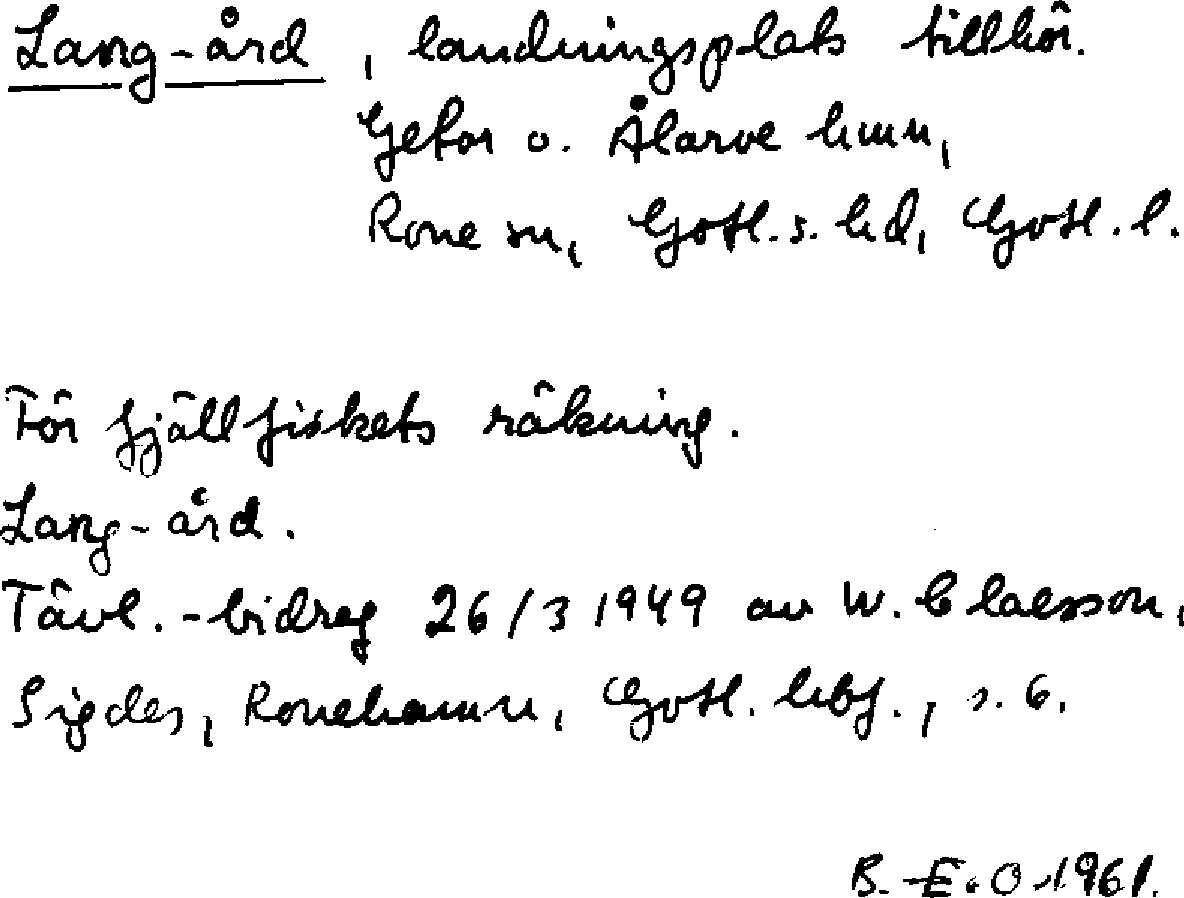 Lang-ård, landningsplats tillhör.
Getor o. Ålarve hmn,
Rone sn, Gotl. s. hd, Gotl. l.
För fjällfiskets räkning.
Lang-ård.
Tävl.-bidrag 26/3 1949 av W. Claesson,
Sigdes, Ronehamn, Gotl. hbf., s. 6.
B. E. O. 1961.